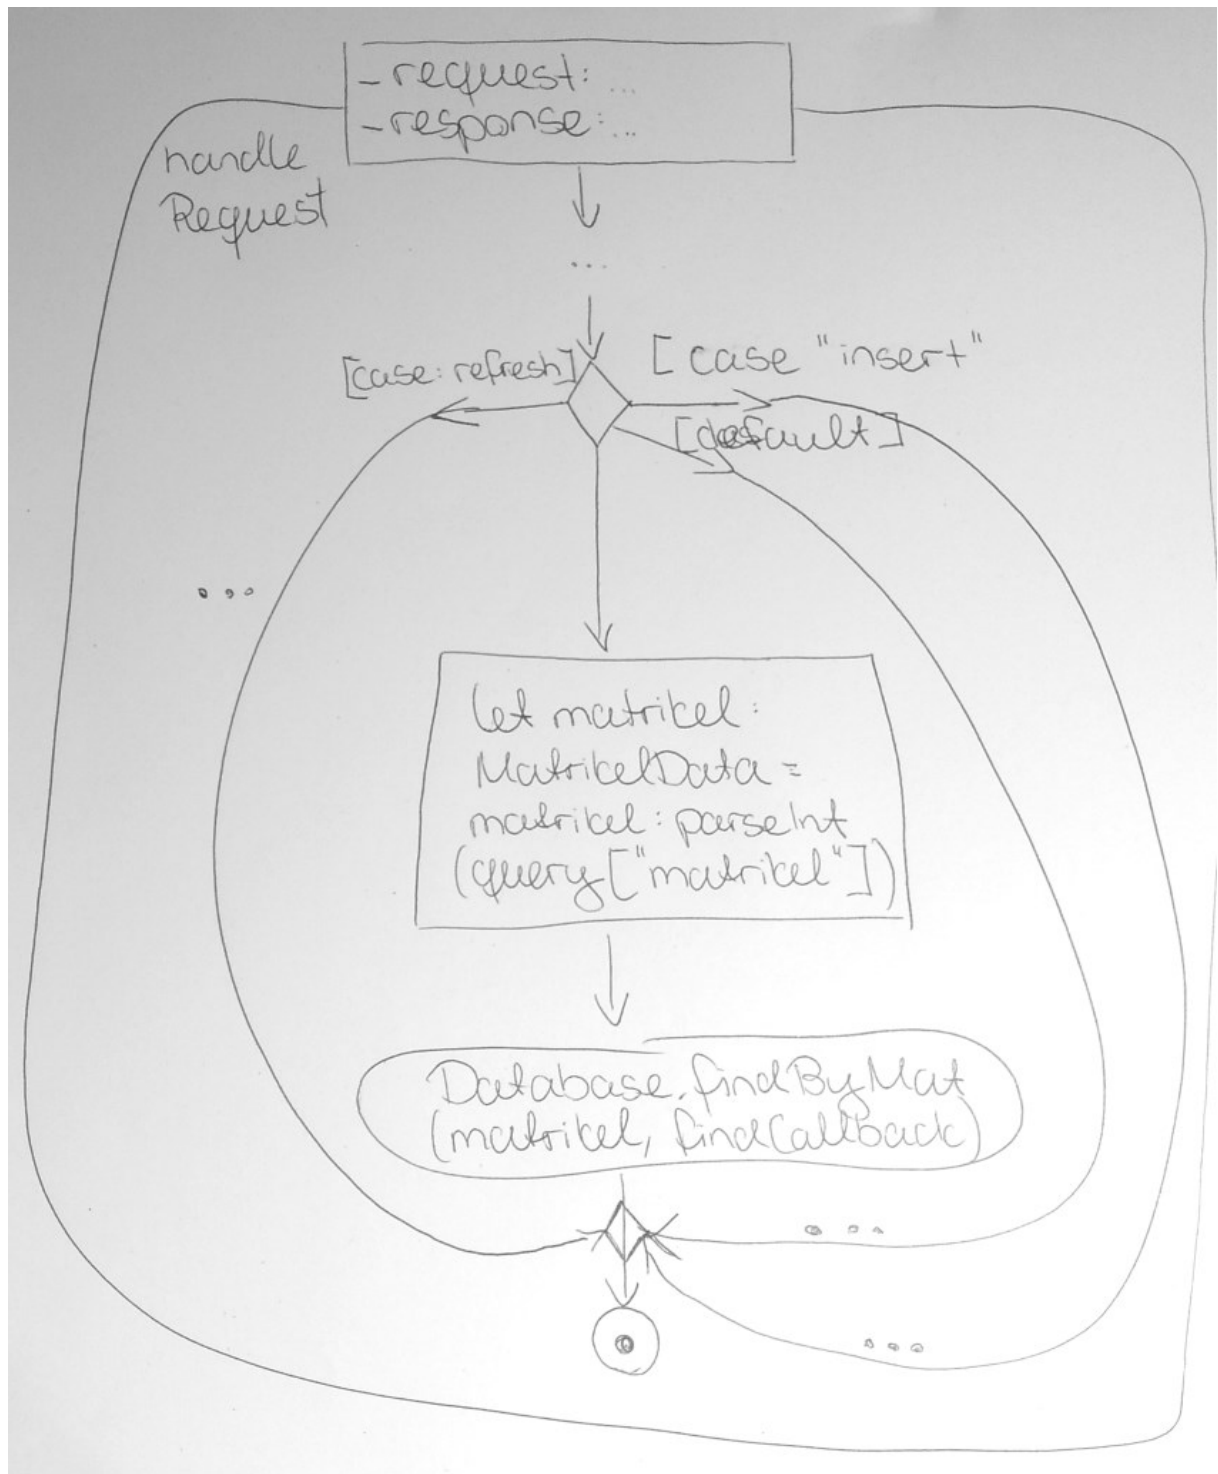 _request: ...
-response: ...
handle
Request
...
[case: refresh]
[ case "insert"
[default]
...
let matrikel:
MatrikelData =
matrikel: parseInt
(query["matrikel"])
Database.findByMat
(matrikel, findCallback)
...
...